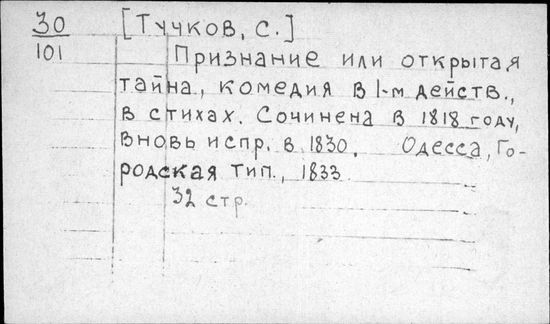 30 [Тучков, С.]
101 Признание или открытая
тайна, комедия в 1-м действ.,
в стихах. Сочинена в 1818 году,
вновь испр. в 1830. Одесса, Го-
родская тип., 1833
32 стр.